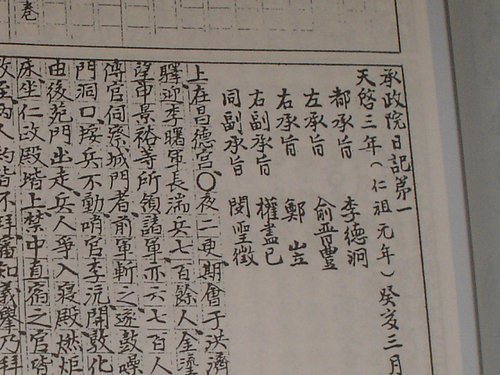 卷
承政院日記第一
天啓三年(仁祖元年)癸亥三月
都承旨 李德泂
左承旨
右承旨 鄭岦
右副承旨 權盡己
同副承旨 閔聖徵
上在昌德宮○夜二更期會于洪濟
驛迎李曙軍長湍兵七百餘人金瑬
望申景裕等所領諸軍亦六七百人
傳官伺察城門者前軍斬之遂鼓噪
門洞口接兵不動哨官李沆開敦化
由後苑門出走兵人爭入寢殿燃炬
床坐仁政殿堦上禁中直宿之官皆
人約皆不拜審知義擧乃拜